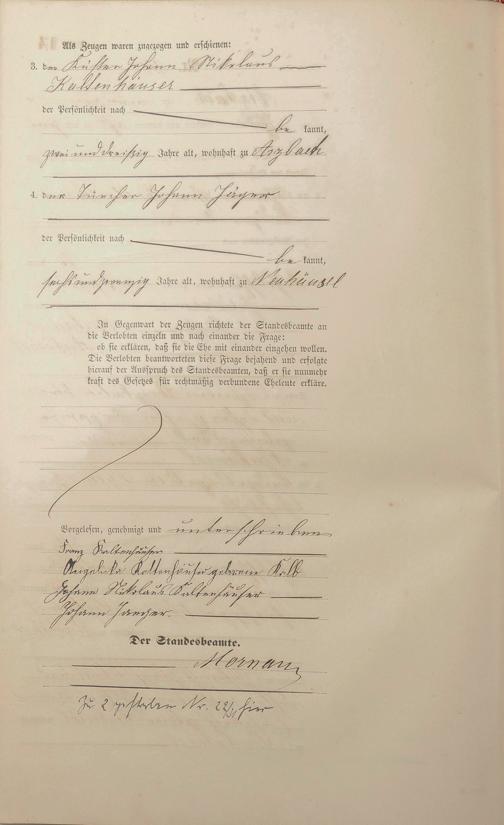 Als Zeugen waren zugezogen und erschienen:
3. der Küster Johann Nikolaus
Kaltenhäuser
der Persönlichkeit nach
be kannt,
zweiunddreißig Jahre alt, wohnhaft zu Arzbach
4. der Tüncher Johann Jäger
der Persönlichkeit nach
be kannt,
sechsundzwanzig Jahre alt, wohnhaft zu Neuhäusel
In Gegenwart der Zeugen richtete der Standesbeamte an
die Verlobten einzeln und nach einander die Frage:
ob sie erklären, daß sie die Ehe mit einander eingehen wollen.
Die Verlobten beantworteten diese Frage bejahend und erfolgte
hierauf der Ausspruch des Standesbeamten, daß er sie nunmehr
kraft des Gesetzes für rechtmäßig verbundene Eheleute erkläre.
Vorgelesen, genehmigt und unterschrieben
Franz Kaltenhäuser
Angelika Kaltenhäuser geborene Kalb
Johann Nikolaus Kaltenhäuser
Johann Jaeger.
Der Standesbeamte.
Zu 2 gestorben Nr. hier